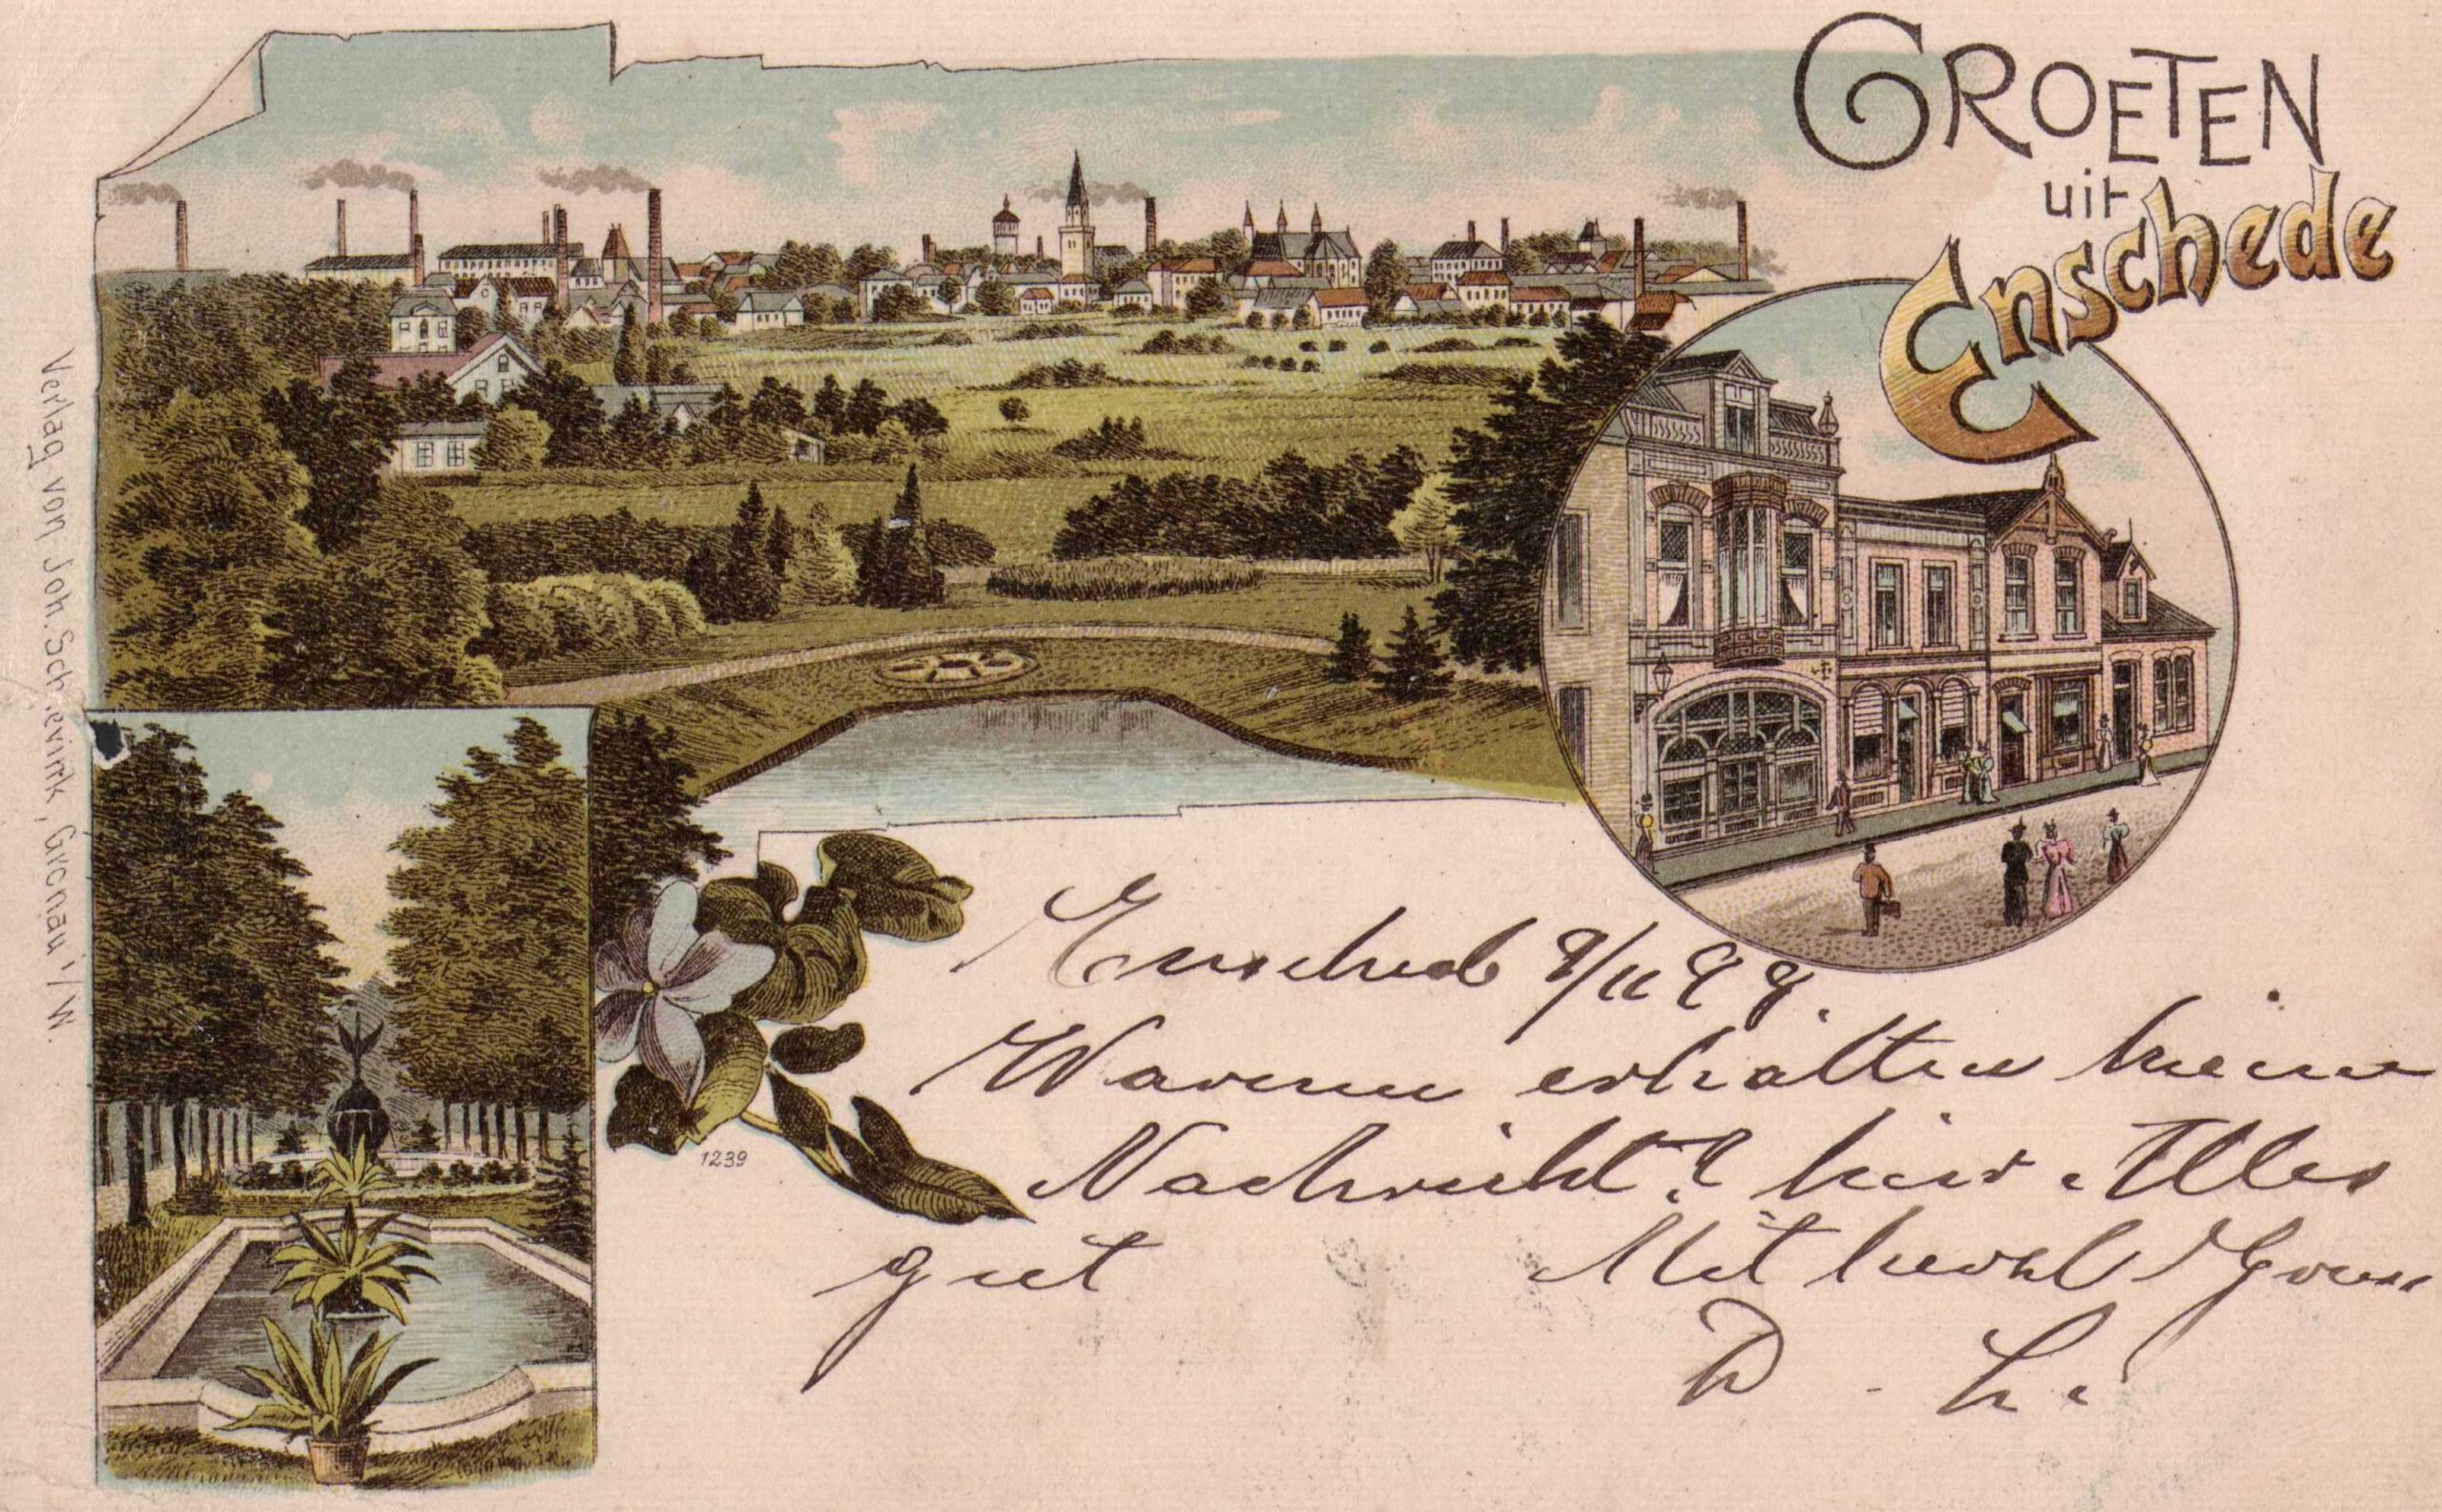 GROETEN
uit
Enschede
Verlag von Joh. Sch.evink, Gronau i/W.
1239
Enschede 9/11 98.
Warum erhalten keine
Nachricht? hier Alles
gut Mit herzl Gruss
D. L.